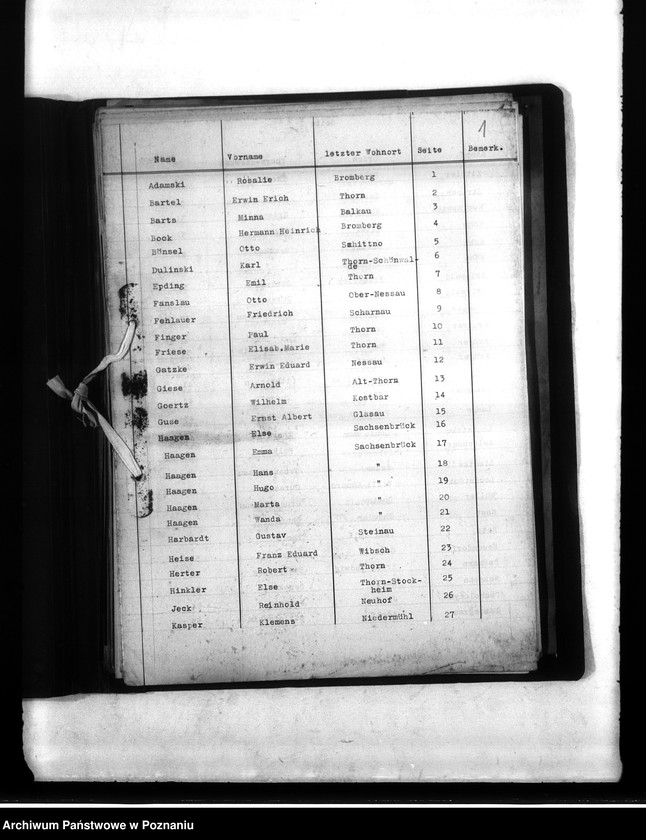 1
Name Vorname letzter Wohnort Seite Bemerk.
Adamski Rosalie Bromberg 1
Bartel Erwin Erich Thorn 2
Barts Minna Balkau 3
Bock Hermann Heinrich Bromberg 4
Bönsel Otto Schittno 5
Dulinski Karl Thorn-Schönwal- 6
de
Epding Emil Thorn 7
Fanslau Otto Ober-Nessau 8
Fehlauer Friedrich Scharnau 9
Finger Paul Thorn 10
Friese Elisab.Marie Thorn 11
Gatzke Erwin Eduard Nessau 12
Giese Arnold Alt-Thorn 13
Goertz Wilhelm Kostbar 14
Guse Ernst Albert Glasau 15
Haagen Else Sachsenbrück 16
Haagen Emma Sachsenbrück 17
Haagen Hans " 18
Haagen Hugo " 19
Haagen Marta " 20
Haagen Wanda " 21
Harbardt Gustav Steinau 22
Heise Franz Eduard Wibsch 23
Herter Robert Thorn 24
Hinkler Else Thorn-Stock- 25
heim
Jeck Reinhold Neuhof 26
Kasper Klemens Niedermühl 27
Archiwum Państwowe w Poznaniu